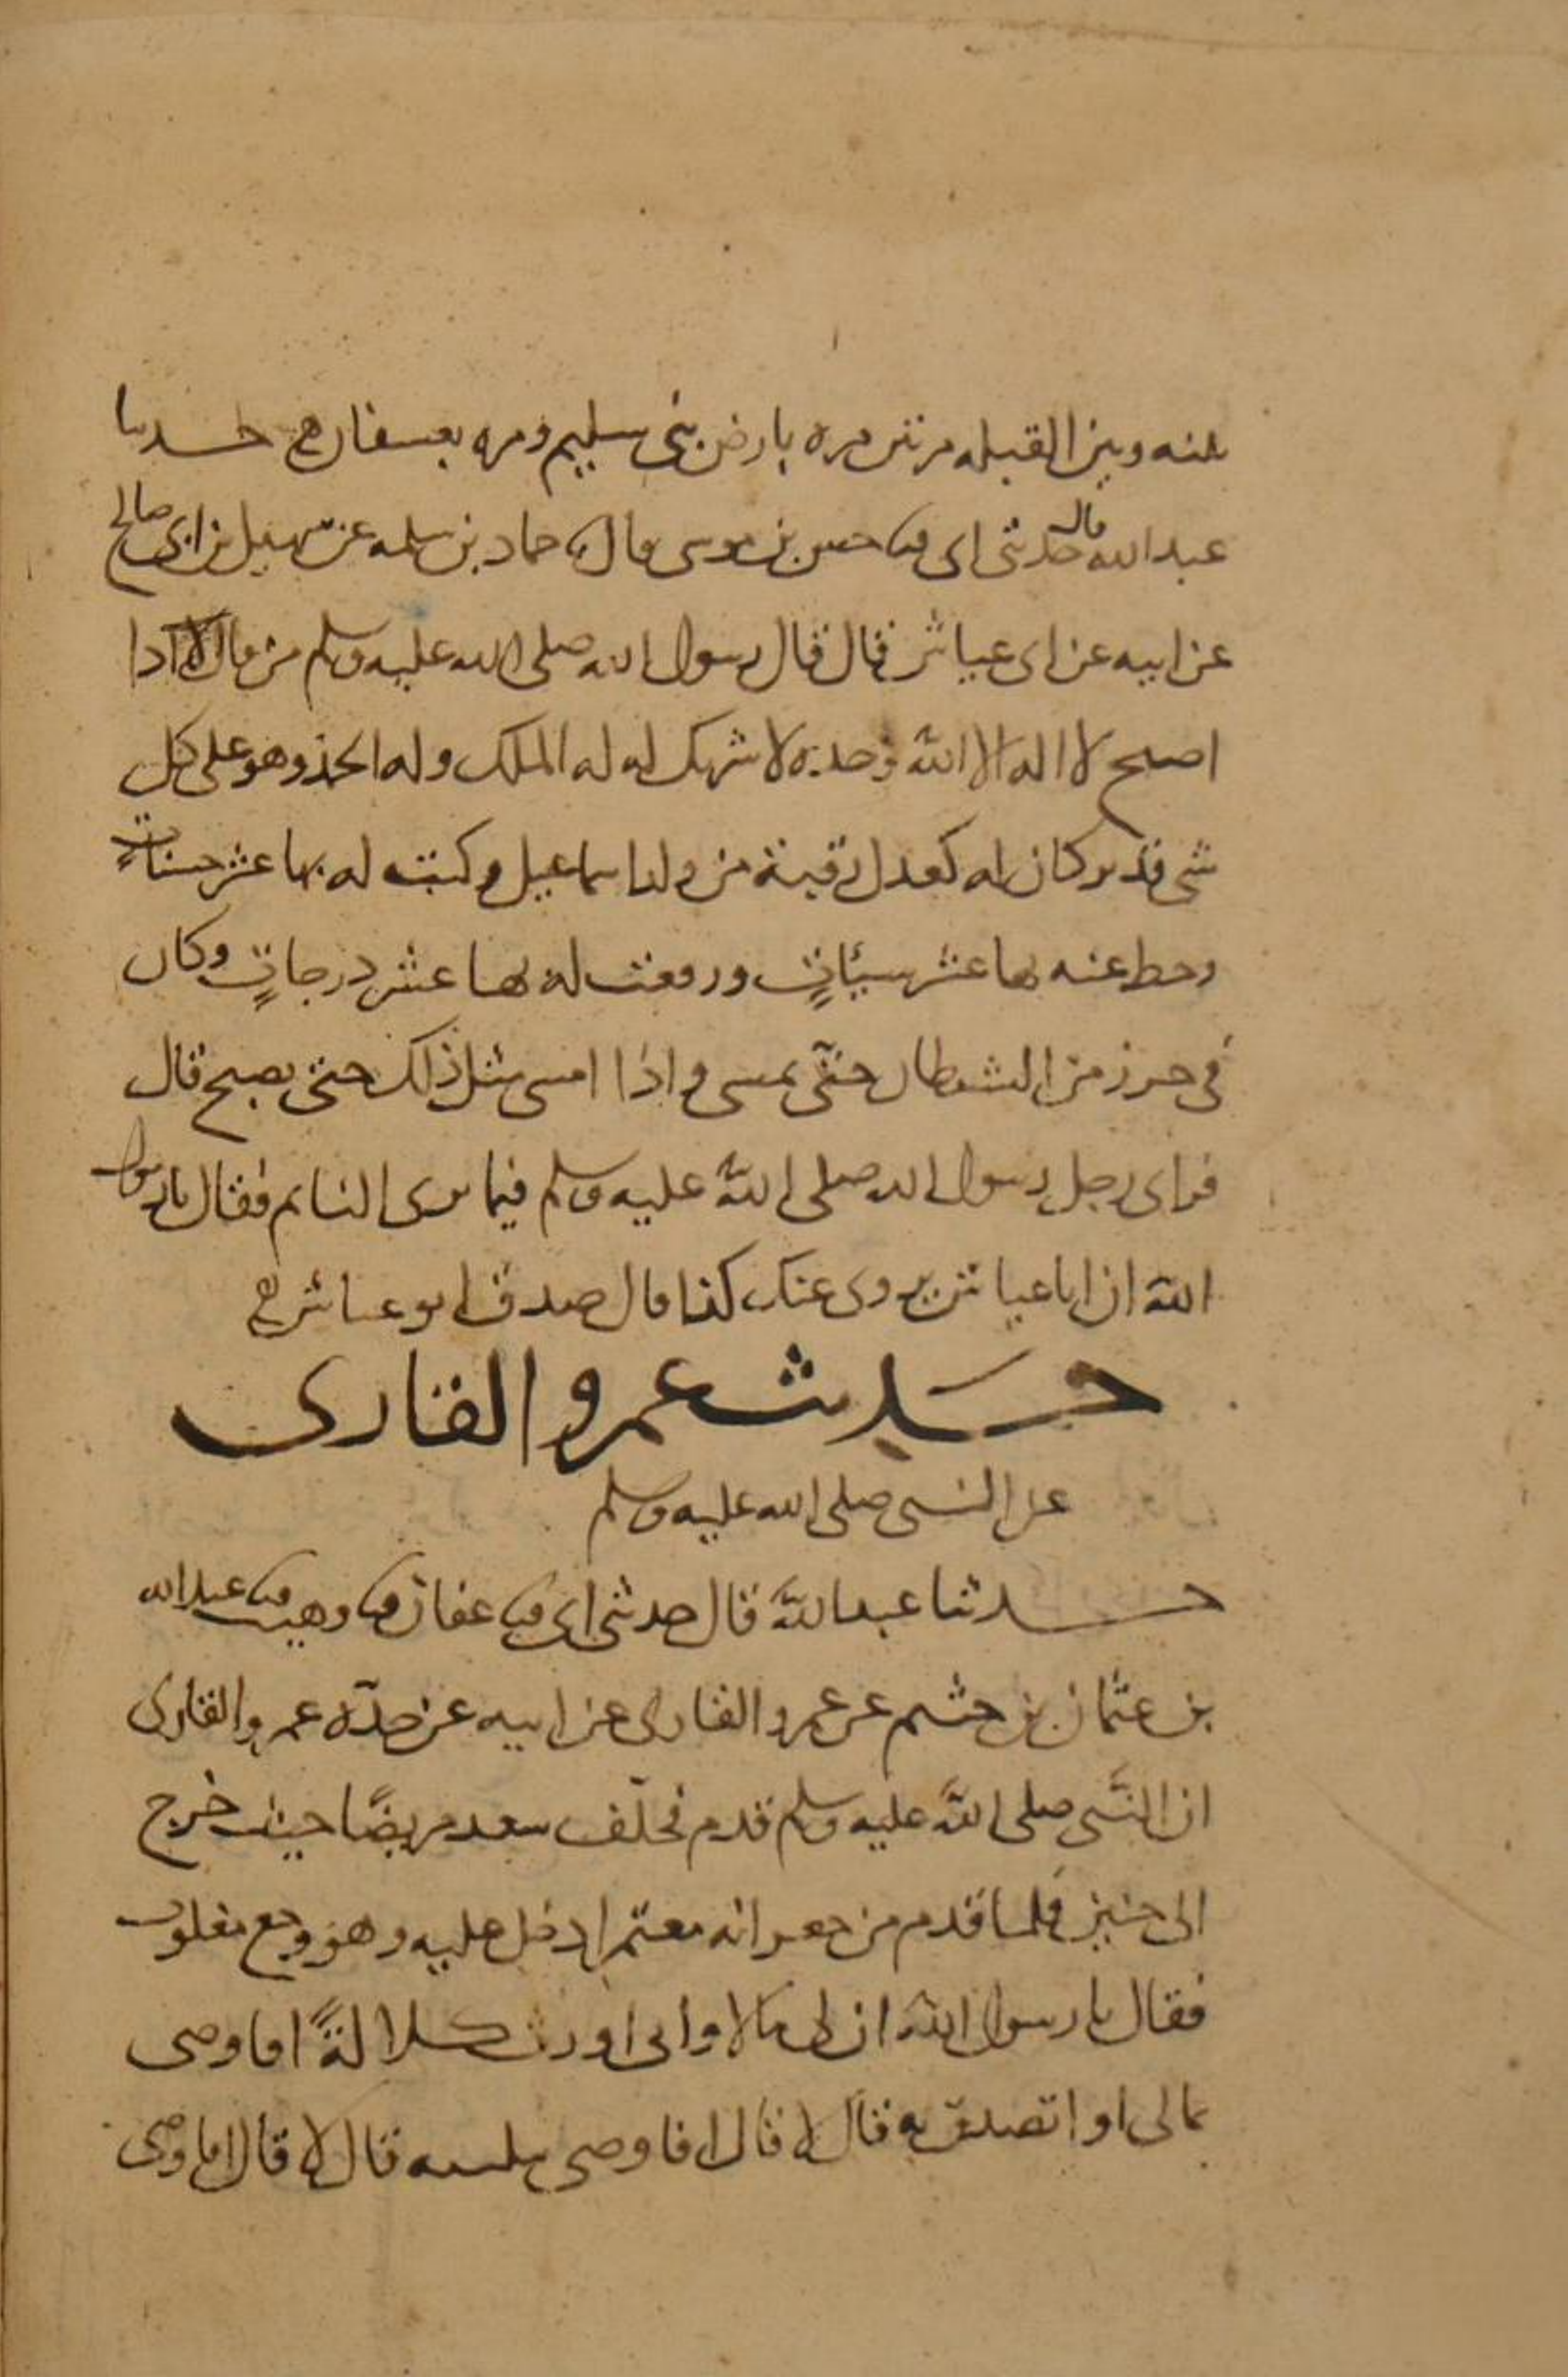 بينه وبين القبله مرتين مره بارض بني سليم ومره بعسفان حدثنا
عبد الله قال حدثني ابي ثنا حسن بن موسى قال ثنا حماد بن سلمه عن سهيل بن ابي صالح
عن ابيه عن ابي عياش قال قال رسول الله صلى الله عليه وسلم من قال اذا
اصبح لا اله الا الله وحده لا شريك له له الملك وله الحمد وهو على كل
شي قدير كان له كعدل رقبة من ولد اسماعيل وكتب له بها عشر حسنات
وحط عنه بها عشر سيئات ورفعت له بها عشر درجات وكان
في حرز من الشيطان حتى يمسي واذا امسى مثل ذلك حتى يصبح قال
فراى رجل رسول الله صلى الله عليه وسلم فيما يرى النايم فقال يا رسول
الله ان ابا عياش يروي عنك كذا قال صدق ابو عياش
حديث عمرو القارى
عن النبي صلى الله عليه وسلم
حدثنا عبد الله قال حدثني ابي ثنا عفان ثنا وهيب ثنا عبد الله
بن عثمان بن خثيم عن عمرو القارى عن ابيه عن جده عمرو القارى
ان النبي صلى الله عليه وسلم قدم فخلف سعد مريضا حيث خرج
الى حنين فلما قدم من جعرانه معتمرا دخل عليه وهو وجع مغلوب
فقال يا رسول الله ان لي مالا واني اورث كلالة افاوصي
بمالي او اتصدق به قال لا قال افاوصي بثلثيه قال لا قال افاوصي